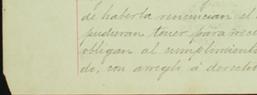 de haberla renuncian el
pudieran tener para rece
obligan al cumplimiento
do, con arreglo á derecho